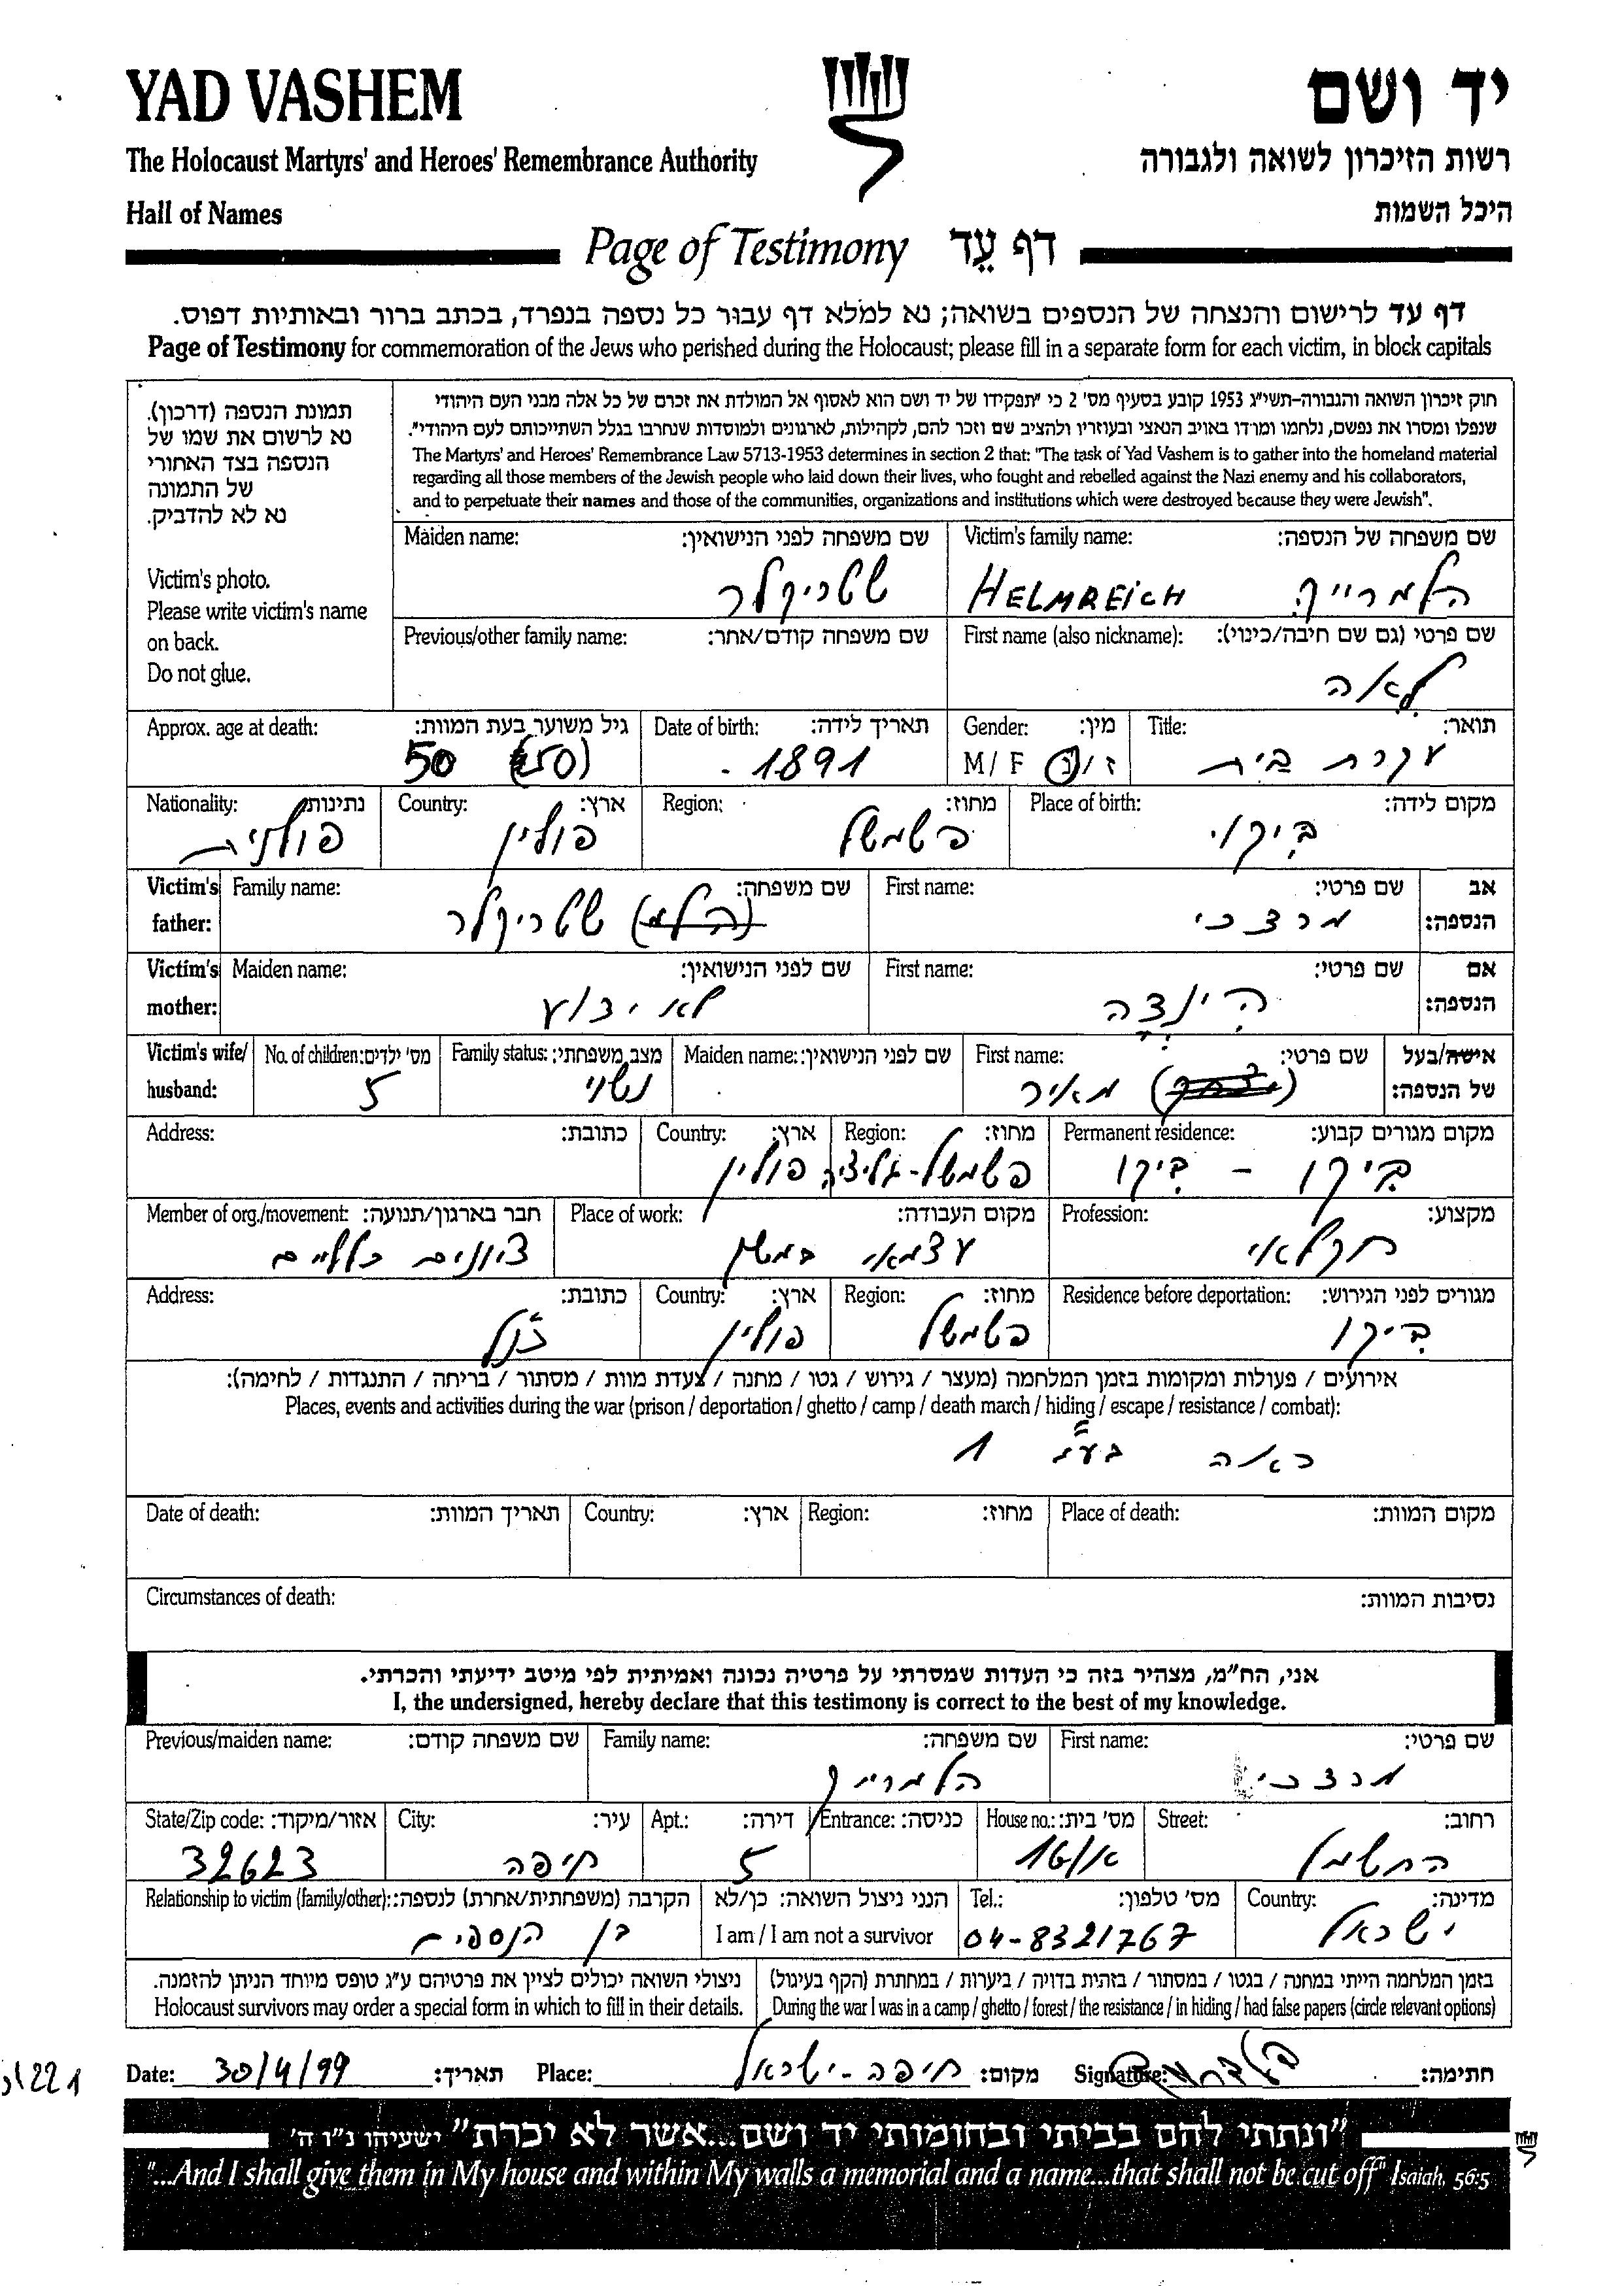 YAD VASHEM
יד ושם
The Holocaust Martyrs' and Heroes' Remembrance Authority
רשות הזיכרון לשואה ולגבורה
Hall of Names
היכל השמות
Page of Testimony דף עֵד
דף עד לרישום והנצחה של הנספים בשואה; נא למלא דף עבור כל נספה בנפרד, בכתב ברור ובאותיות דפוס.
Page of Testimony for commemoration of the Jews who perished during the Holocaust; please fill in a separate form for each victim, in block capitals
תמונת הנספה (דרכון).
נא לרשום את שמו של
הנספה בצד האחורי
של התמונה
נא לא להדביק.
Victim's photo.
Please write victim's name
on back.
Do not glue.
חוק זיכרון השואה והגבורה-תשי"ג 1953 קובע בסעיף מס' 2 כי "תפקידו של יד ושם הוא לאסוף אל המולדת את זכרם של כל אלה מבני העם היהודי
שנפלו ומסרו את נפשם, נלחמו ומרדו באויב הנאצי ובעוזריו ולהציב שם וזכר להם, לקהילות, לארגונים ולמוסדות שנחרבו בגלל השתייכותם לעם היהודי".
The Martyrs' and Heroes' Remembrance Law 5713-1953 determines in section 2 that: "The task of Yad Vashem is to gather into the homeland material
regarding all those members of the Jewish people who laid down their lives, who fought and rebelled against the Nazi enemy and his collaborators,
and to perpetuate their names and those of the communities, organizations and institutions which were destroyed because they were Jewish".
Maiden name: שם משפחה לפני הנישואין:
שטריקלר
Victim's family name: שם משפחה של הנספה:
HELMREICH הלמרייך
Previous/other family name: שם משפחה קודם/אחר:
First name (also nickname): שם פרטי (גם שם חיבה/כינוי):
לאה
Approx. age at death: גיל משוער בעת המוות:
50 (50)
Date of birth: תאריך לידה:
1891
Gender: מין:
M / F ז / נ
Title: תואר:
עקרת בית
Nationality: נתינות:
פולנית
Country: ארץ:
פולין
Region: מחוז:
פשמשל
Place of birth: מקום לידה:
Victim's father: Family name: שם משפחה:
(הלמ) שטריקלר
First name: שם פרטי: אב הנספה:
מרדכי
Victim's mother: Maiden name: שם לפני הנישואין:
לא ידוע
First name: שם פרטי: אם הנספה:
Victim's wife/ husband: No. of children: מס' ילדים:
5
Family status: מצב משפחתי:
נשוי
Maiden name: שם לפני הנישואין:
First name: שם פרטי: אישה/בעל של הנספה:
מאיר
Address: כתובת:
Country: ארץ:
פולין
Region: מחוז:
פשמשל-גליציה
Permanent residence: מקום מגורים קבוע:
בירקו - בירקו
Member of org./movement: חבר בארגון/תנועה:
ציונים כלליים
Place of work: מקום העבודה:
עצמאי במשק
Profession: מקצוע:
חקלאי
Address: כתובת:
כנ"ל
Country: ארץ:
פולין
Region: מחוז:
פשמשל
Residence before deportation: מגורים לפני הגירוש:
אירועים / פעולות ומקומות בזמן המלחמה (מעצר / גירוש / גטו / מחנה / צעדת מוות / מסתור / בריחה / התנגדות / לחימה):
Places, events and activities during the war (prison / deportation / ghetto / camp / death march / hiding / escape / resistance / combat):
ראה 1
Date of death: תאריך המוות:
Country: ארץ:
Region: מחוז:
Place of death: מקום המוות:
Circumstances of death: נסיבות המוות:
אני, הח"מ, מצהיר בזה כי העדות שמסרתי על פרטיה נכונה ואמיתית לפי מיטב ידיעתי והכרתי.
I, the undersigned, hereby declare that this testimony is correct to the best of my knowledge.
Previous/maiden name: שם משפחה קודם:
Family name: שם משפחה:
הלמרייך
First name: שם פרטי:
מרדכי
State/Zip code: אזור/מיקוד:
32623
City: עיר:
חיפה
Apt.: דירה:
5
Entrance: כניסה:
House no.: מס' בית:
16/א
Street: רחוב:
החשמל
Relationship to victim (family/other): הקרבה (משפחתית/אחרת) לנספה:
בן הנספית
הנני ניצול השואה: כן/לא
I am / I am not a survivor
Tel.: מס' טלפון:
04-8321767
Country: מדינה:
ישראל
ניצולי השואה יכולים לציין את פרטיהם ע"ג טופס מיוחד הניתן להזמנה.
Holocaust survivors may order a special form in which to fill in their details.
בזמן המלחמה הייתי במחנה / בגטו / במסתור / בזהות בדויה / ביערות / במחתרת (הקף בעיגול)
During the war I was in a camp / ghetto / forest / the resistance / in hiding / had false papers (circle relevant options)
Date: 30/4/99 תאריך: Place: חיפה - ישראל מקום: Signature: חתימה:
"ונתתי להם בביתי ובחומותי יד ושם...אשר לא יכרת" ישעיהו נ"ו ה'
"...And I shall give them in My house and within My walls a memorial and a name...that shall not be cut off" Isaiah, 56:5